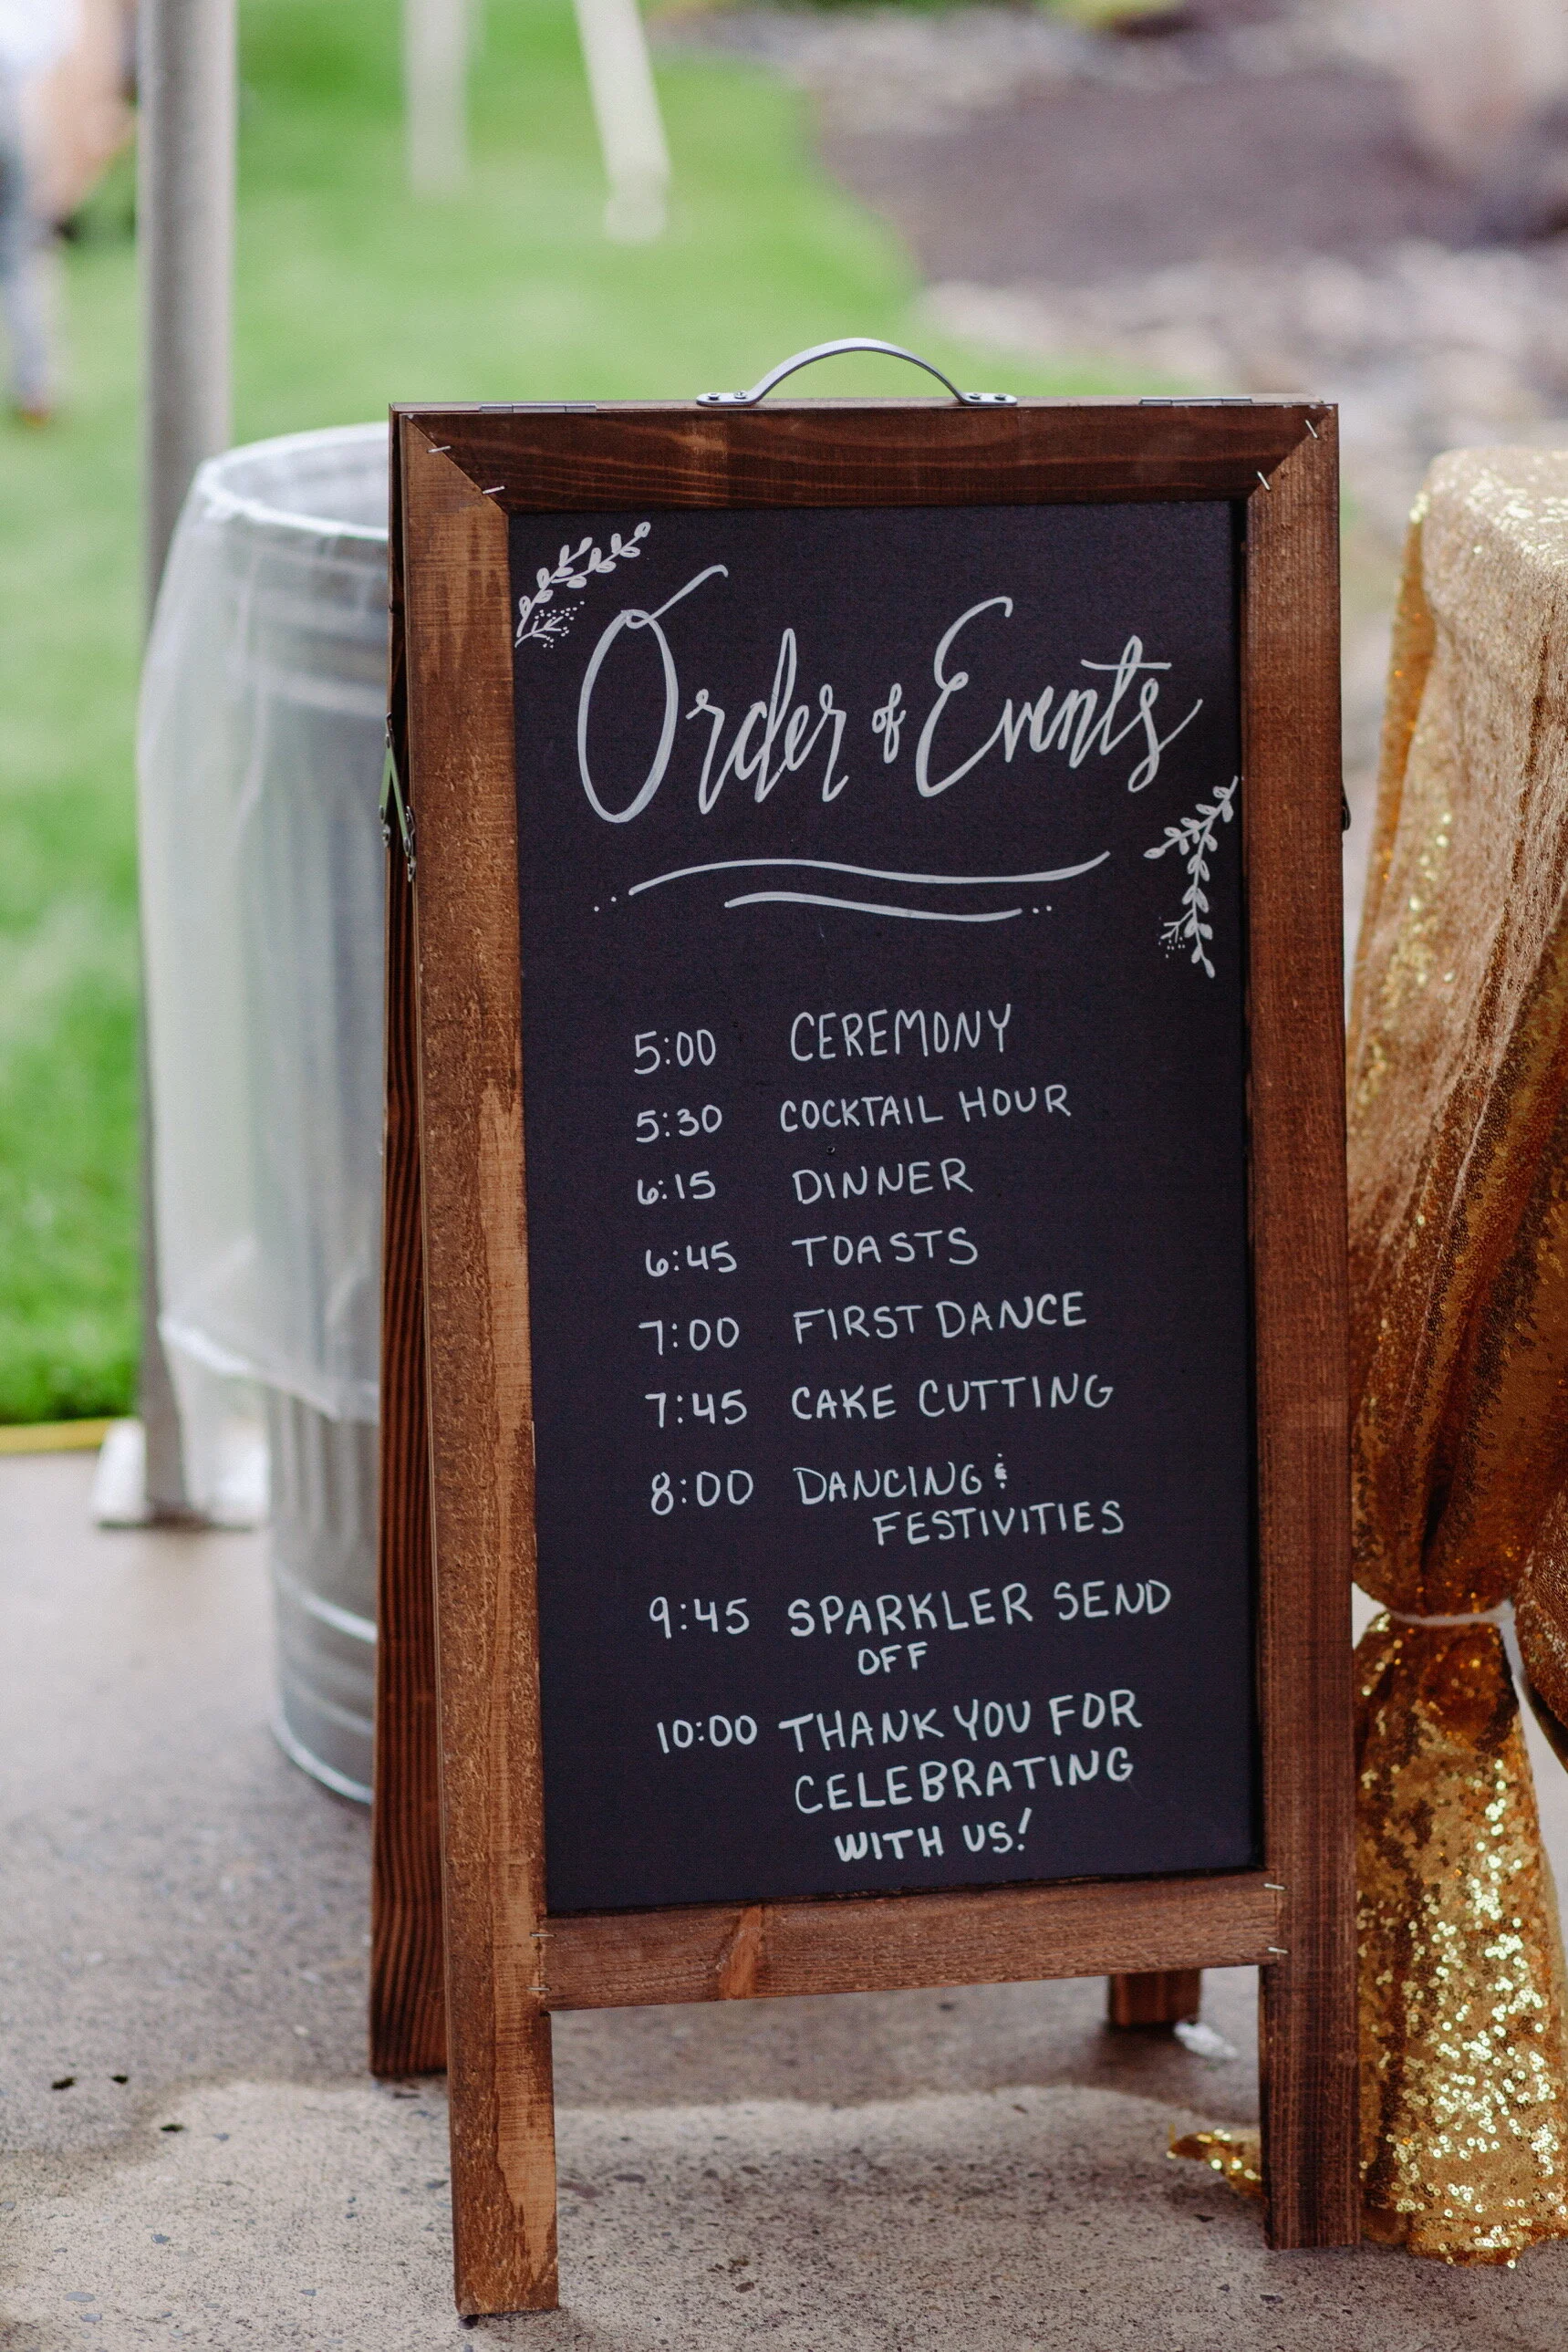 Order of Events
5:00 CEREMONY
5:30 COCKTAIL HOUR
6:15 DINNER
6:45 TOASTS
7:00 FIRST DANCE
7:45 CAKE CUTTING
8:00 DANCING &
FESTIVITIES
9:45 SPARKLER SEND
OFF
10:00 THANK YOU FOR
CELEBRATING
WITH US!